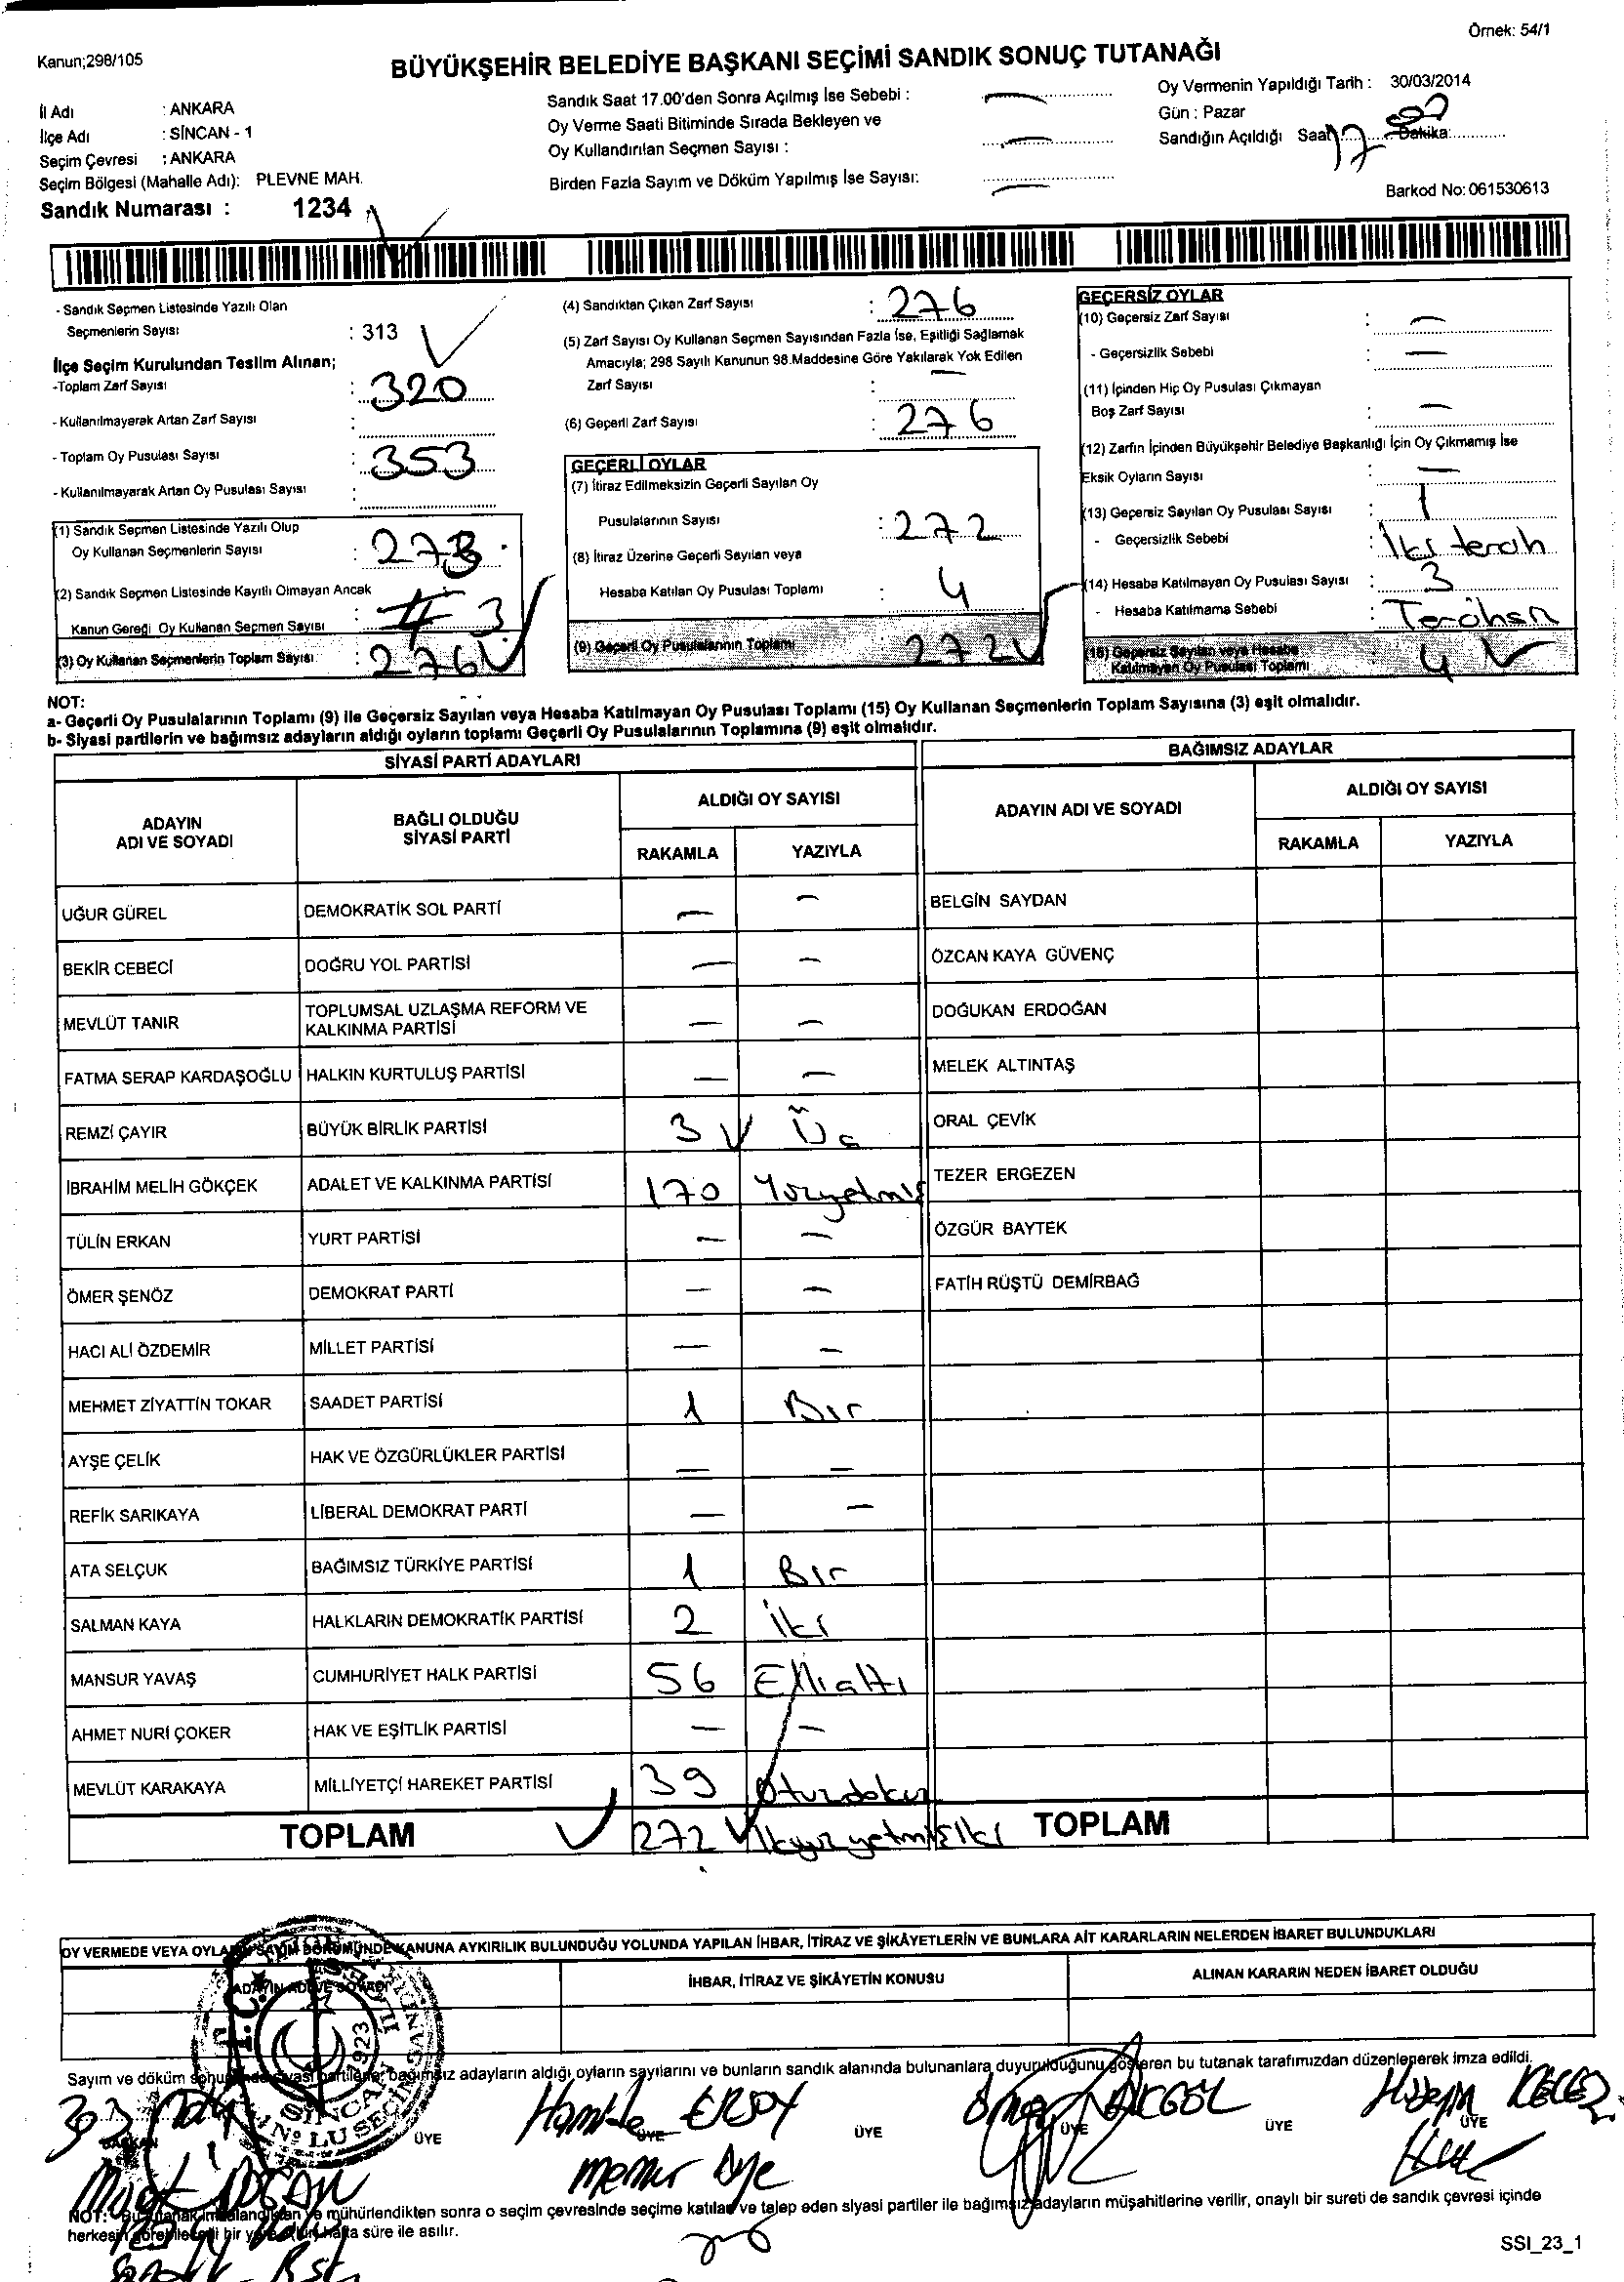 Örnek: 54/1
Kanun;298/105
BÜYÜKŞEHİR BELEDİYE BAŞKANI SEÇİMİ SANDIK SONUÇ TUTANAĞI
İl Adı : ANKARA
İlçe Adı : SİNCAN - 1
Seçim Çevresi : ANKARA
Seçim Bölgesi (Mahalle Adı): PLEVNE MAH.
Sandık Numarası : 1234
Sandık Saat 17.00'den Sonra Açılmış İse Sebebi : —
Oy Verme Saati Bitiminde Sırada Bekleyen ve
Oy Kullandırılan Seçmen Sayısı : —
Birden Fazla Sayım ve Döküm Yapılmış İse Sayısı: —
Oy Vermenin Yapıldığı Tarih : 30/03/2014
Gün : Pazar
Sandığın Açıldığı Saat 17 Dakika: 00
Barkod No: 061530613
- Sandık Seçmen Listesinde Yazılı Olan
Seçmenlerin Sayısı : 313
İlçe Seçim Kurulundan Teslim Alınan;
-Toplam Zarf Sayısı : 320
- Kullanılmayarak Artan Zarf Sayısı :
- Toplam Oy Pusulası Sayısı : 353
- Kullanılmayarak Artan Oy Pusulası Sayısı :
(1) Sandık Seçmen Listesinde Yazılı Olup
Oy Kullanan Seçmenlerin Sayısı : 273
(2) Sandık Seçmen Listesinde Kayıtlı Olmayan Ancak
Kanun Gereği Oy Kullanan Seçmen Sayısı : 3
(3) Oy Kullanan Seçmenlerin Toplam Sayısı : 276
(4) Sandıktan Çıkan Zarf Sayısı : 276
(5) Zarf Sayısı Oy Kullanan Seçmen Sayısından Fazla İse, Eşitliği Sağlamak
Amacıyla; 298 Sayılı Kanunun 98.Maddesine Göre Yakılarak Yok Edilen
Zarf Sayısı : —
(6) Geçerli Zarf Sayısı : 276
GEÇERLİ OYLAR
(7) İtiraz Edilmeksizin Geçerli Sayılan Oy
Pusulalarının Sayısı : 272
(8) İtiraz Üzerine Geçerli Sayılan veya
Hesaba Katılan Oy Pusulası Toplamı : 4
(9) Geçerli Oy Pusulalarının Toplamı 272
GEÇERSİZ OYLAR
(10) Geçersiz Zarf Sayısı : —
- Geçersizlik Sebebi : —
(11) İçinden Hiç Oy Pusulası Çıkmayan
Boş Zarf Sayısı : —
(12) Zarfın İçinden Büyükşehir Belediye Başkanlığı İçin Oy Çıkmamış İse
Eksik Oyların Sayısı : —
(13) Geçersiz Sayılan Oy Pusulası Sayısı : 1
- Geçersizlik Sebebi : İki tercih
(14) Hesaba Katılmayan Oy Pusulası Sayısı : 3
- Hesaba Katılmama Sebebi :
(15) Geçersiz Sayılan veya Hesaba
Katılmayan Oy Pusulası Toplamı 4
NOT:
a- Geçerli Oy Pusulalarının Toplamı (9) ile Geçersiz Sayılan veya Hesaba Katılmayan Oy Pusulası Toplamı (15) Oy Kullanan Seçmenlerin Toplam Sayısına (3) eşit olmalıdır.
b- Siyasi partilerin ve bağımsız adayların aldığı oyların toplamı Geçerli Oy Pusulalarının Toplamına (9) eşit olmalıdır.
SİYASİ PARTİ ADAYLARI
ADAYIN
ADI VE SOYADI
BAĞLI OLDUĞU
SİYASİ PARTİ
ALDIĞI OY SAYISI
RAKAMLA YAZIYLA
UĞUR GÜREL DEMOKRATİK SOL PARTİ — —
BEKİR CEBECİ DOĞRU YOL PARTİSİ — —
MEVLÜT TANIR TOPLUMSAL UZLAŞMA REFORM VE
KALKINMA PARTİSİ — —
FATMA SERAP KARDAŞOĞLU HALKIN KURTULUŞ PARTİSİ — —
REMZİ ÇAYIR BÜYÜK BİRLİK PARTİSİ 3 Üç
İBRAHİM MELİH GÖKÇEK ADALET VE KALKINMA PARTİSİ 170 Yüzyetmiş
TÜLİN ERKAN YURT PARTİSİ — —
ÖMER ŞENÖZ DEMOKRAT PARTİ — —
HACI ALİ ÖZDEMİR MİLLET PARTİSİ — —
MEHMET ZİYATTİN TOKAR SAADET PARTİSİ 1 Bir
AYŞE ÇELİK HAK VE ÖZGÜRLÜKLER PARTİSİ — —
REFİK SARIKAYA LİBERAL DEMOKRAT PARTİ — —
ATA SELÇUK BAĞIMSIZ TÜRKİYE PARTİSİ 1 Bir
SALMAN KAYA HALKLARIN DEMOKRATİK PARTİSİ 2 İki
MANSUR YAVAŞ CUMHURİYET HALK PARTİSİ 56 Ellialtı
AHMET NURİ ÇOKER HAK VE EŞİTLİK PARTİSİ — —
MEVLÜT KARAKAYA MİLLİYETÇİ HAREKET PARTİSİ 39 Otuzdokuz
TOPLAM 272 İkiyüzyetmişiki
BAĞIMSIZ ADAYLAR
ADAYIN ADI VE SOYADI
ALDIĞI OY SAYISI
RAKAMLA YAZIYLA
BELGİN SAYDAN
ÖZCAN KAYA GÜVENÇ
DOĞUKAN ERDOĞAN
MELEK ALTINTAŞ
ORAL ÇEVİK
TEZER ERGEZEN
ÖZGÜR BAYTEK
FATİH RÜŞTÜ DEMİRBAĞ
TOPLAM
OY VERMEDE VEYA OYLARIN SAYIM DÖKÜMÜNDE KANUNA AYKIRILIK BULUNDUĞU YOLUNDA YAPILAN İHBAR, İTİRAZ VE ŞİKÂYETLERİN VE BUNLARA AİT KARARLARIN NELERDEN İBARET BULUNDUKLARI
ADAYIN ADI VE SOYADI
İHBAR, İTİRAZ VE ŞİKÂYETİN KONUSU
ALINAN KARARIN NEDEN İBARET OLDUĞU
T.C.
1923
SİNCAN
Sayım ve döküm sonucunda siyasi partilerle, bağımsız adayların aldığı oyların sayılarını ve bunların sandık alanında bulunanlara duyurulduğunu gösteren bu tutanak tarafımızdan düzenlenerek imza edildi.
BAŞKAN ÜYE ÜYE ÜYE ÜYE ÜYE ÜYE
Hamide ERSOY
Memur Üye
NOT: Bu tutanak imzalandıktan ve mühürlendikten sonra o seçim çevresinde seçime katılan ve talep eden siyasi partiler ile bağımsız adayların müşahitlerine verilir, onaylı bir sureti de sandık çevresi içinde
herkesin görebileceği bir yere bir hafta süre ile asılır.
SSI_23_1